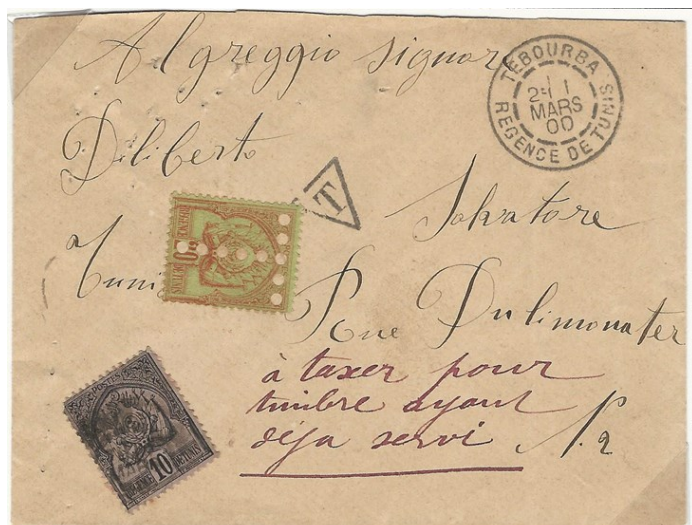 Al greggio signore
TEBOURBA
29 1
MARS
00
REGENCE DE TUNIS
Diliberto
T
Salvatore
a Tuni
Rue Dulimonater
à taxer pour
timbre ayant
déja servi
N. 2
10
REGENCE DE TUNIS